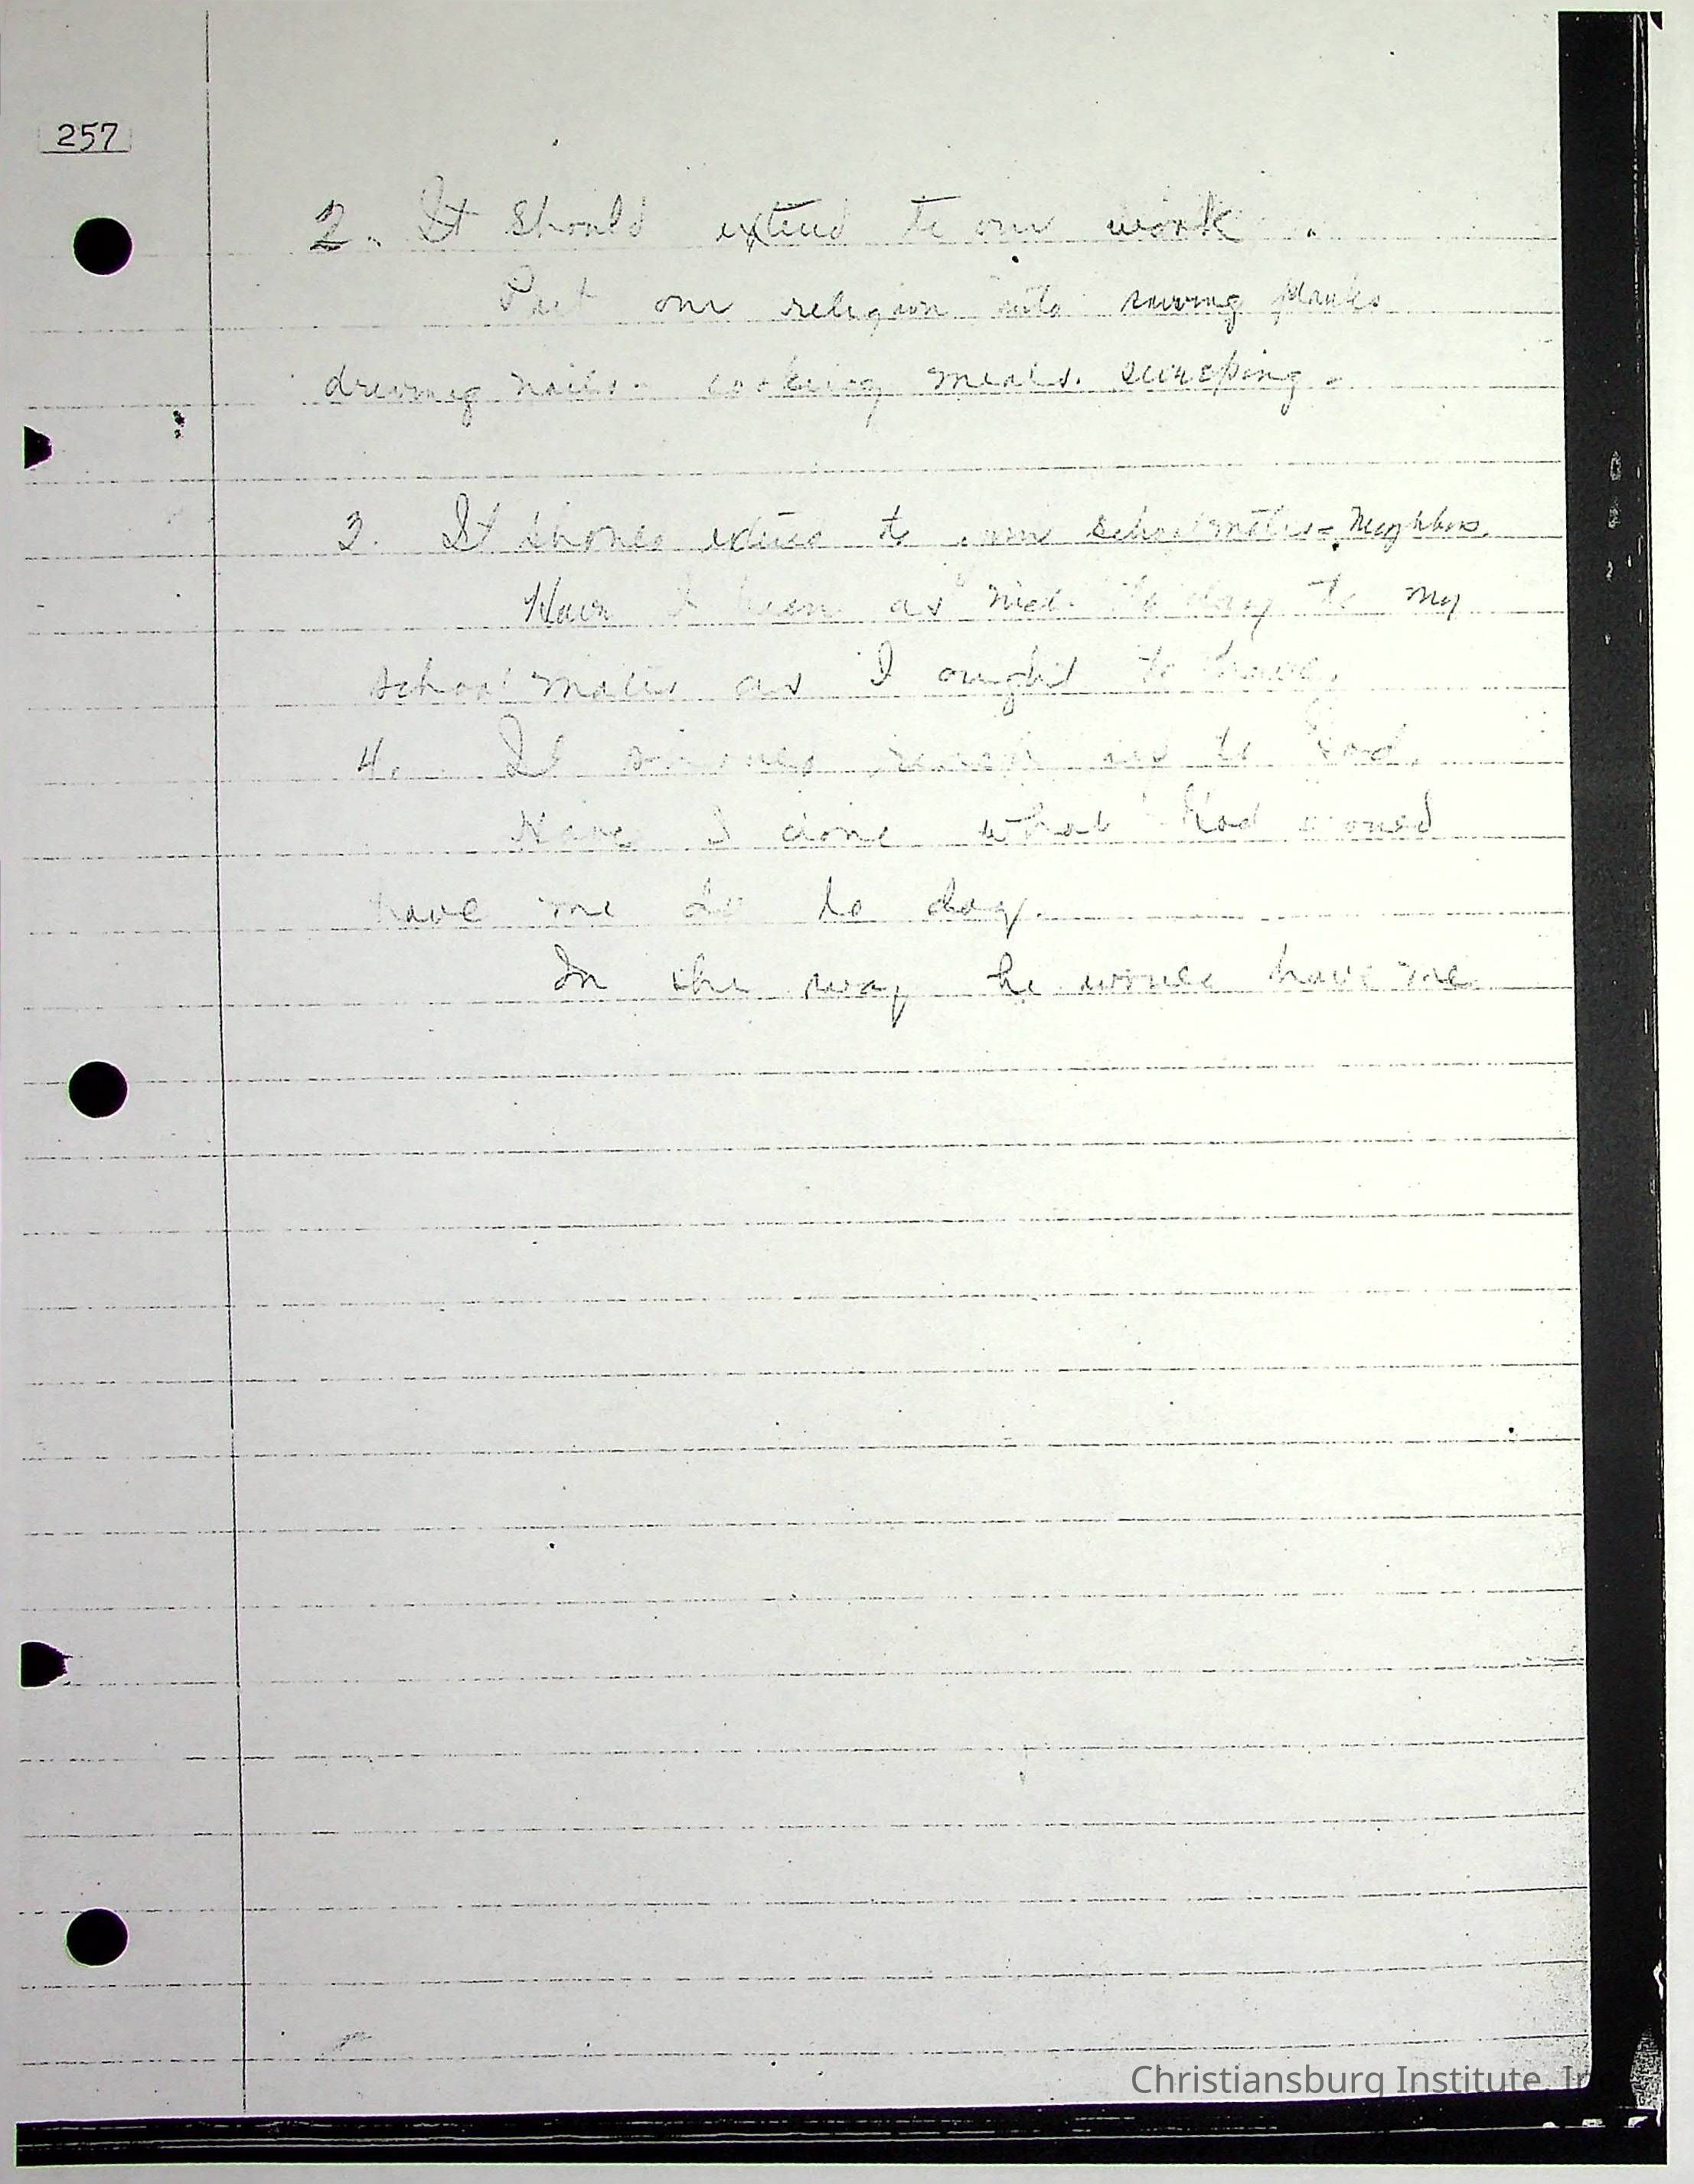 257
2. It should extend to our work.
Put our religion into sawing planks
driving nails. cooking meals. sweeping.
3. It should extend to our schoolmates - Neighbors
Have I been as nice to day to my
schoolmates as I ought to have.
4. It should to God.
Have I done what God would
have me do to day.
In the way he would have me
Christiansburg Institute, In